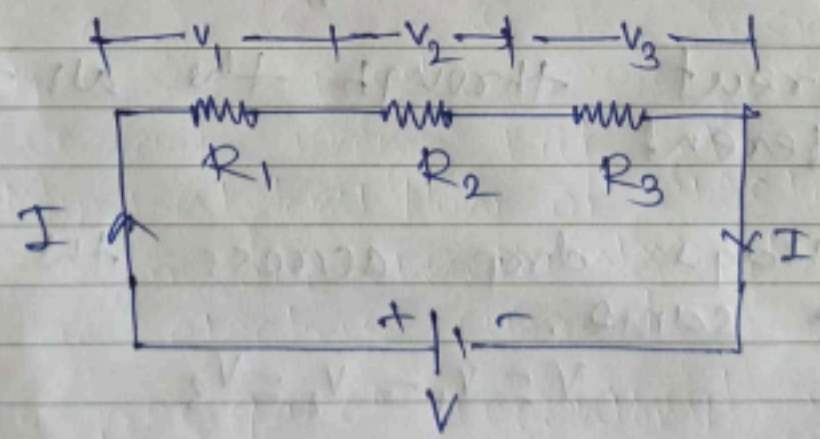 V1 V2 V3
R1 R2 R3
I I
+ -
V